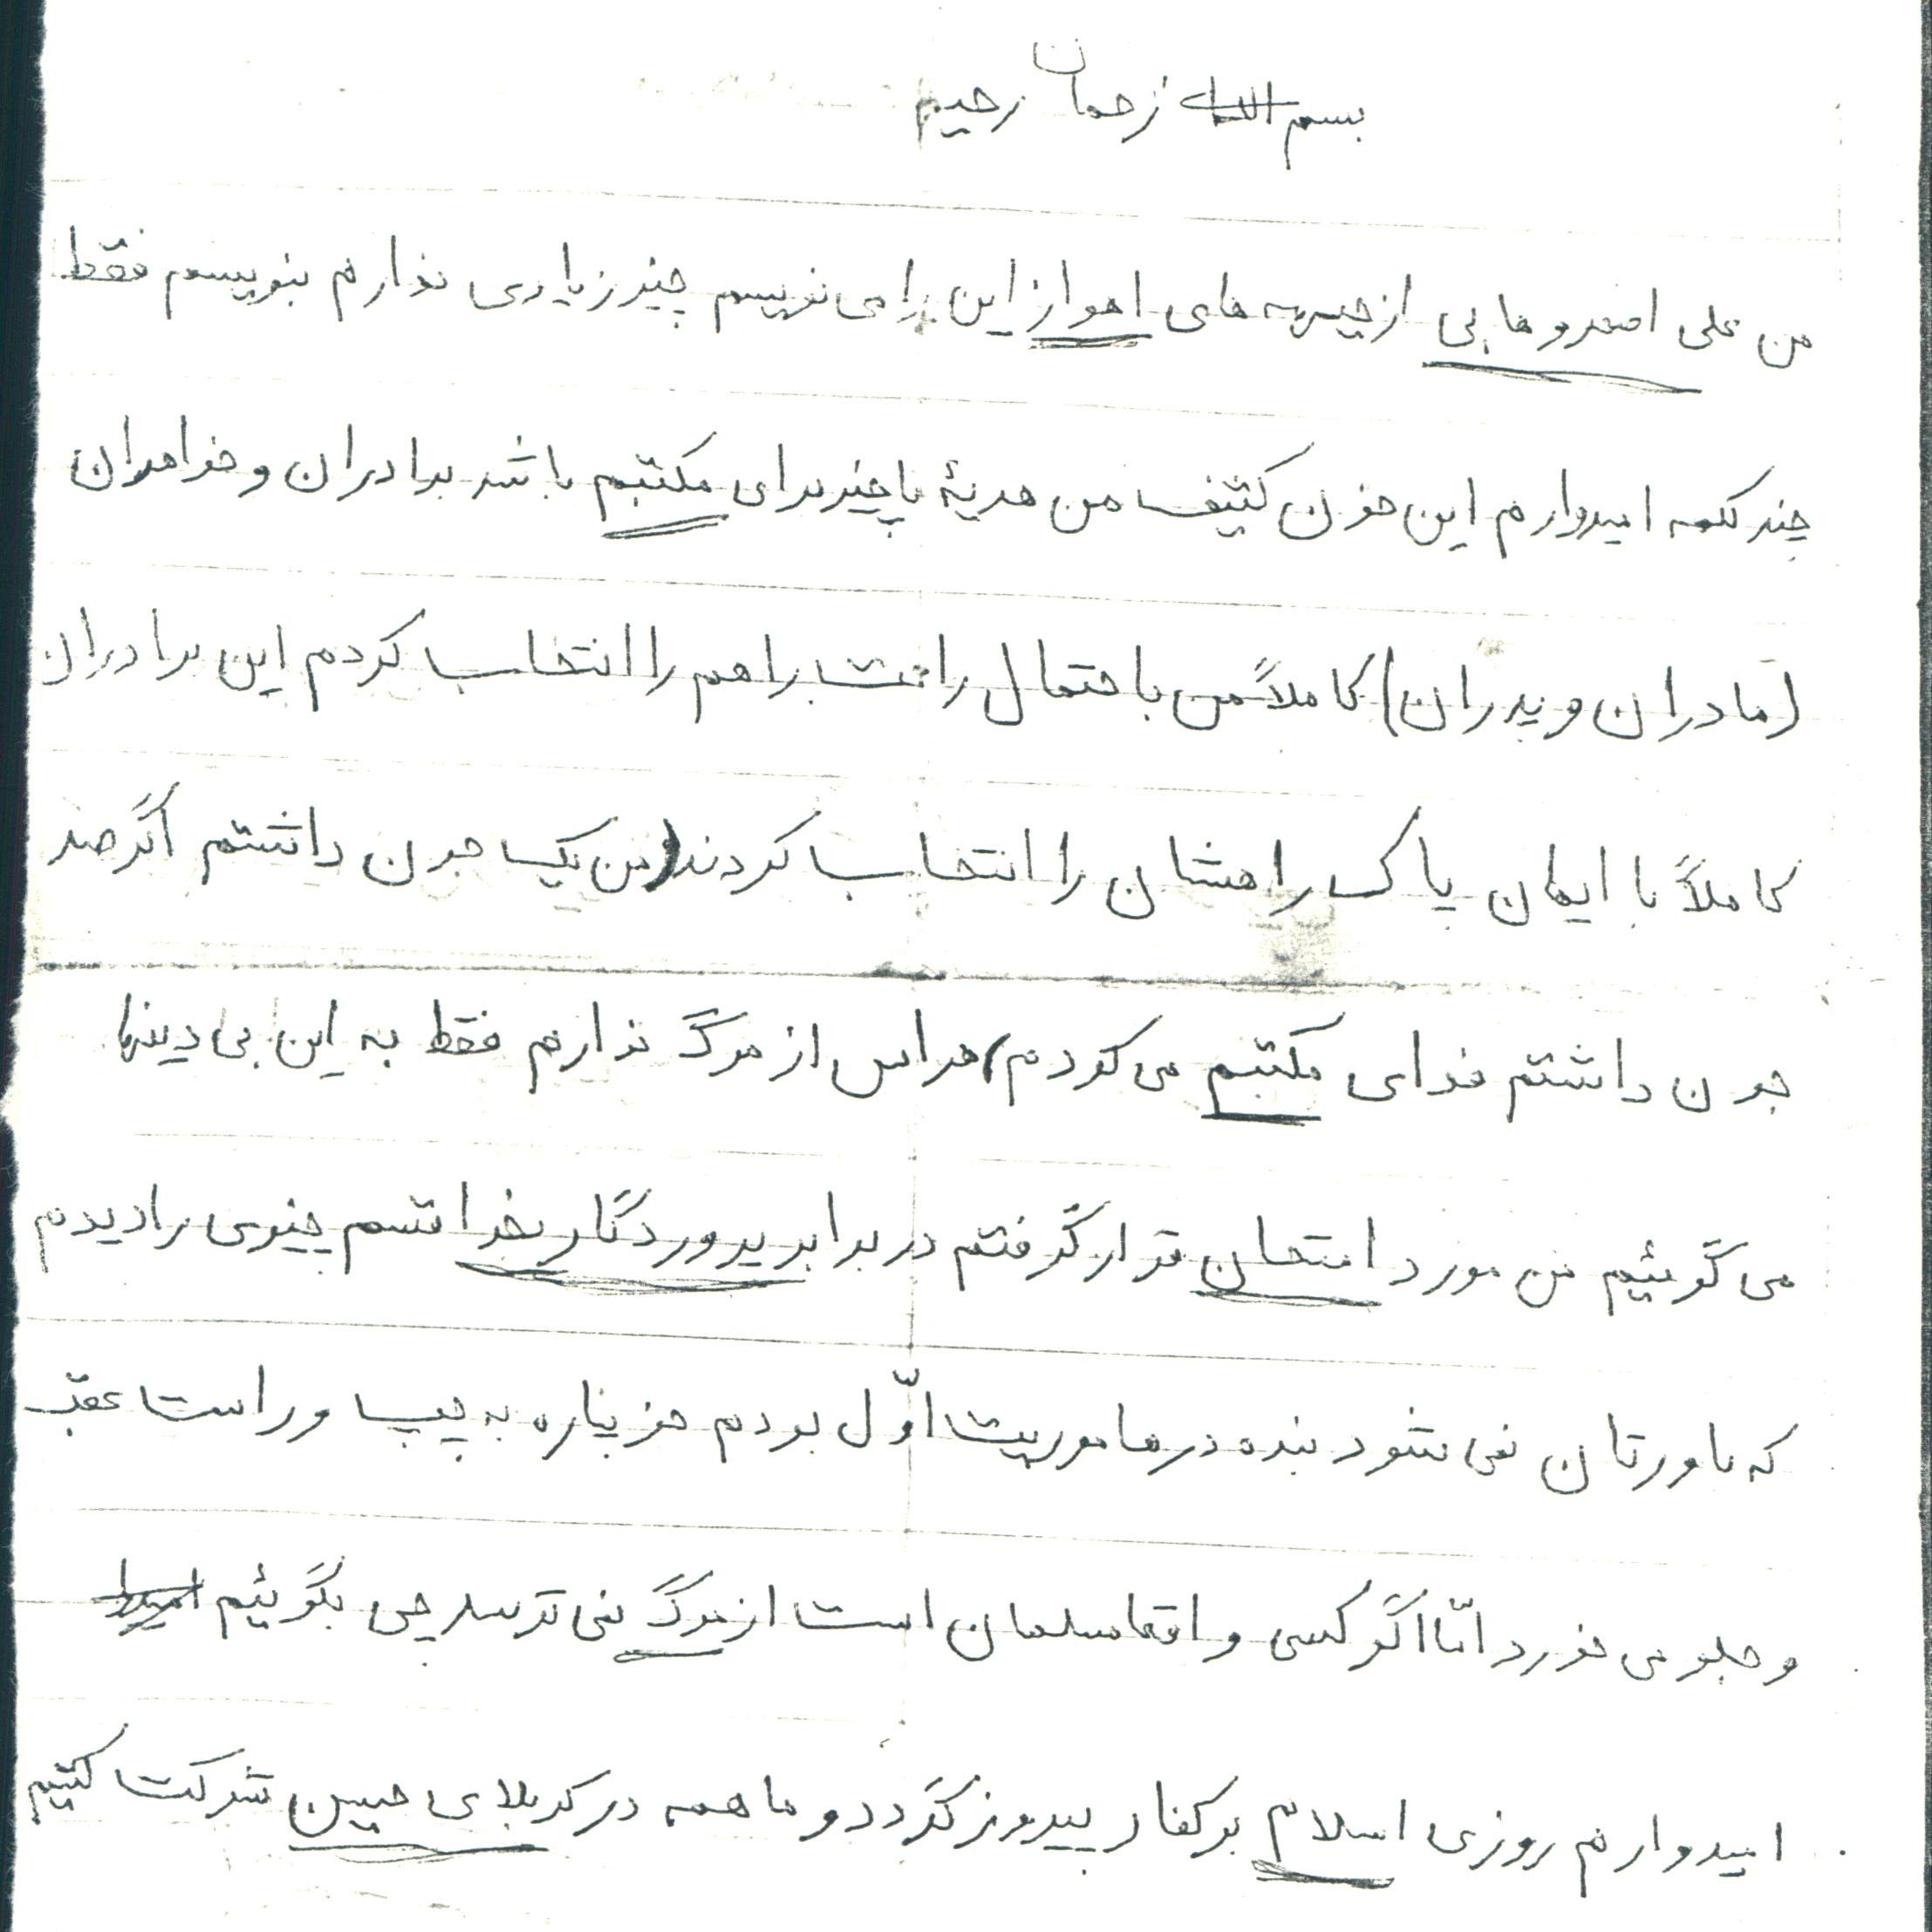 بسم الله رحمان رحیم
من علی اصغر وهابی از جبهه های اهواز این را می نویسم چیز زیادی ندارم بنویسم فقط
چند کلمه امیدوارم این خون کثیف من هدیهٔ ناچیز برای مکتبم باشد برادران و خواهران
(مادران و پدران) کاملاً من با احتمال راحت راهم را انتخاب کردم این برادران
کاملاً با ایمان پاک راهشان را انتخاب کردند (من یک جون داشتم اگر صد
جون داشتم فدای مکتبم می کردم) هراس از مرگ ندارم فقط به این بی دینها
می گوئیم من مورد امتحان قرار گرفتم در برابر پروردگار بخدا قسم چیزی را دیدم
که باورتان نمی شود بنده در ماموریت اوّل بودم خمپاره به چپ و راست عقب
و جلو می خورد امّا اگر کسی واقعا مسلمان است از مرگ نمی ترسد چی بگوئیم
امیدوارم روزی اسلام بر کفار پیروز گردد و ما همه در کربلای حسین شرکت کنیم